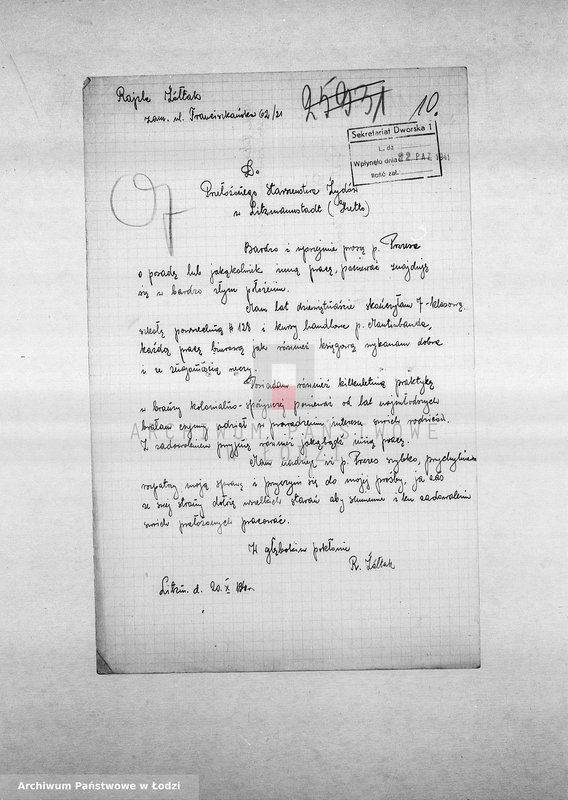 Rajzla Żółtak
zam. ul. Franciszkańska 62/21
25931
10.
Sekretariat Dworska 1
L. dz
Wpłynęło dnia 22 PAŹ 1941
Ilość zał.
Do
Przełożonego Starszeństwa Żydów
w Litzmannstadt (Getto)
Bardzo i uprzejmie proszę p. Prezesa
o posadę lub jakąkolwiek inną pracę, ponieważ znajduję
się w bardzo złym położeniu.
Mam lat dziewiętnaście skończyłam 7-klasową
szkołę powszechną № 128 i kursy handlowe p. Mantinbanda,
każdą pracę biurową jak również księgową wykonam dobrze
i ze znajomością rzeczy.
Posiadam również kilkuletnią praktykę
w branży kolonialno-spożywczej ponieważ od lat najmłodszych
brałam czynny udział w prowadzeniu interesu swoich rodziców.
Z zadowoleniem przyjmę również jakąbądź inną pracę.
Mam nadzieję iż p. Prezes szybko, przychylnie
rozpatrzy moją sprawę i przyczyni się do mojej prośby, ja zaś
ze swej strony dołożę wszelkich starań aby sumiennie i ku zadowoleniu
swoich przełożonych pracować.
Z głębokim pokłonem
R. Żółtak
Litzm. d. 20. X 1941r.
ARCHIWUM PAŃSTWOWE
W ŁODZI
Archiwum Państwowe w Łodzi